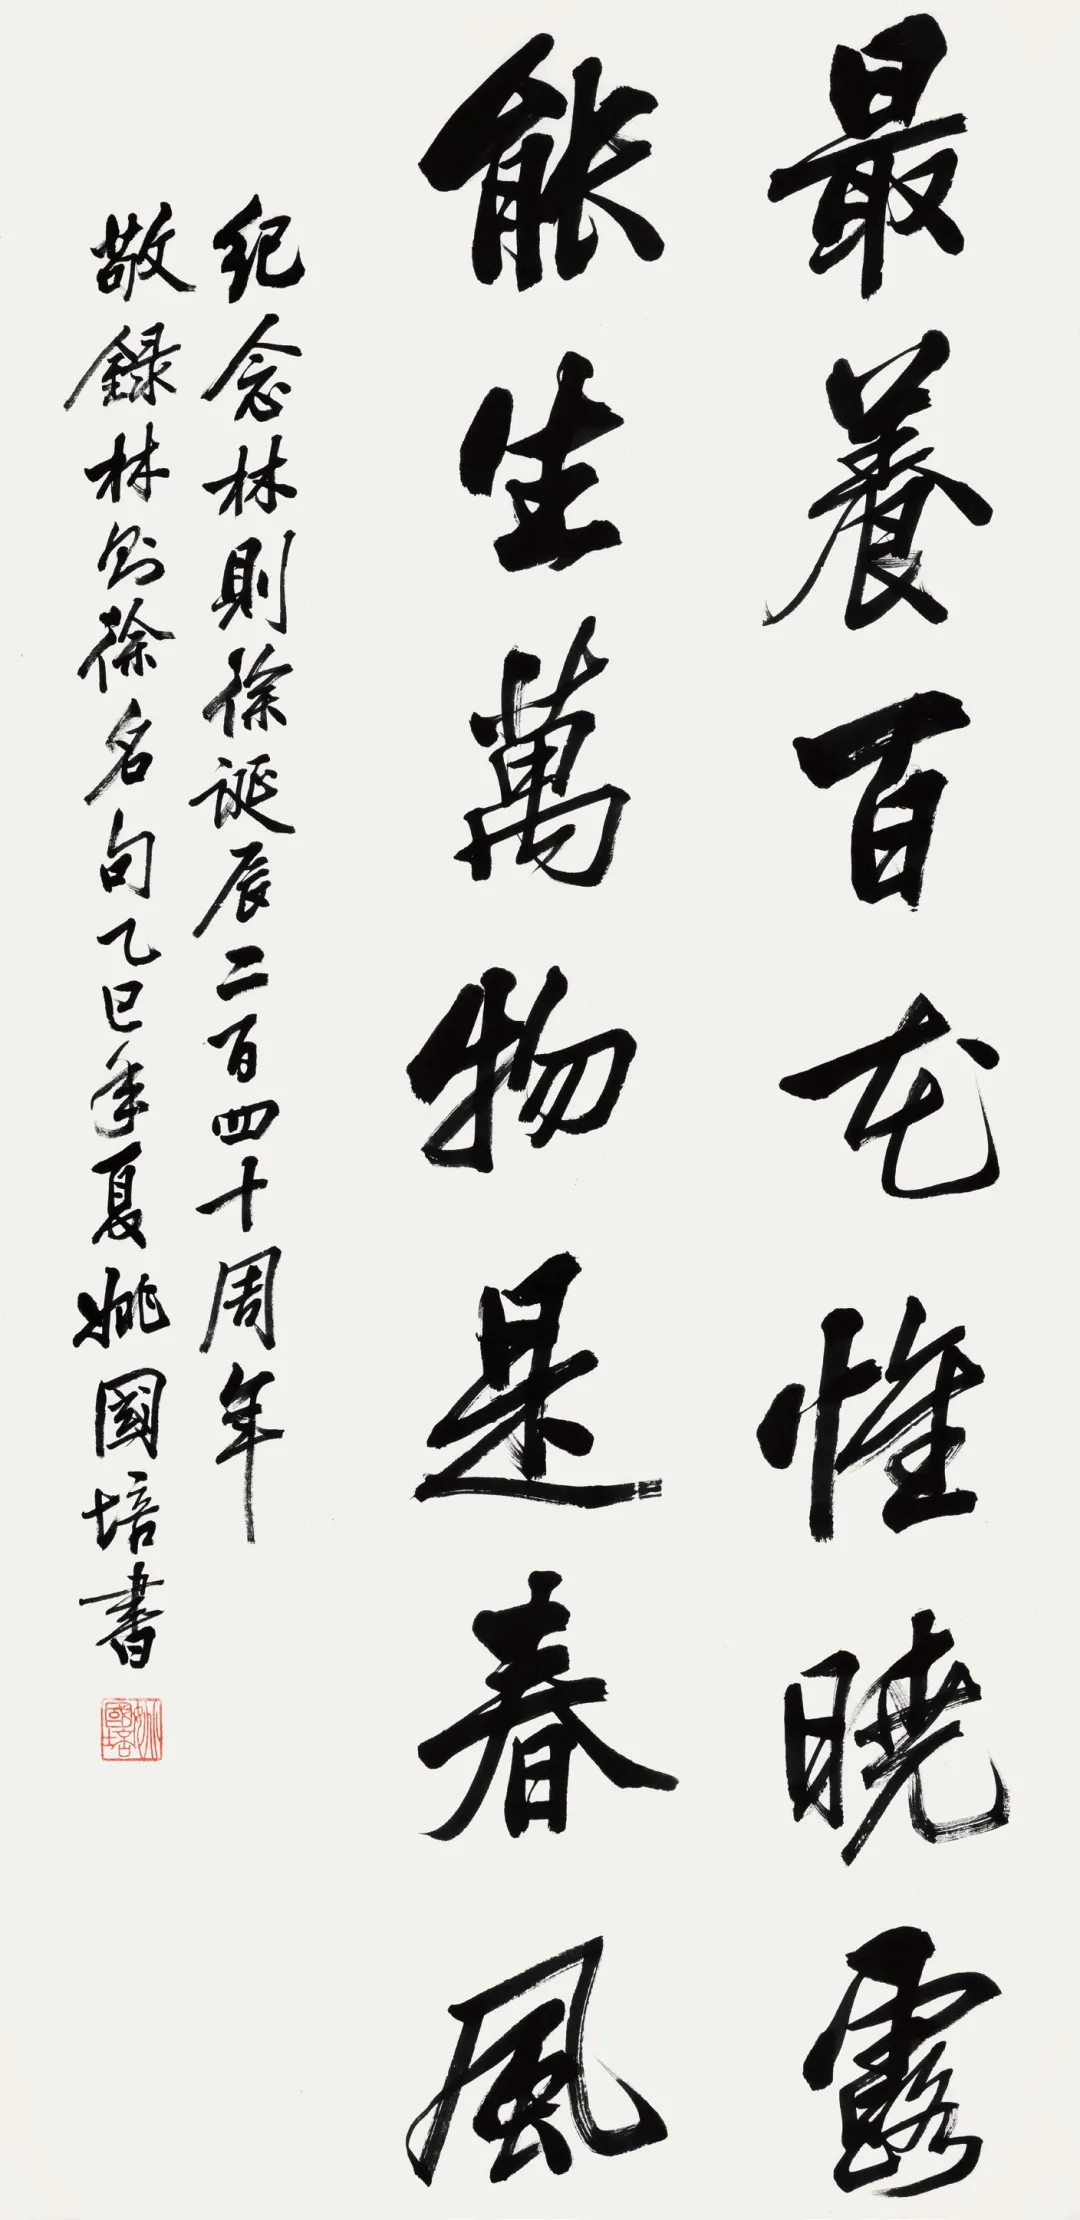 最養百花惟曉露
能生萬物是春風
紀念林則徐誕辰二百四十周年
敬錄林則徐名句乙巳年夏姚國培書
姚國培